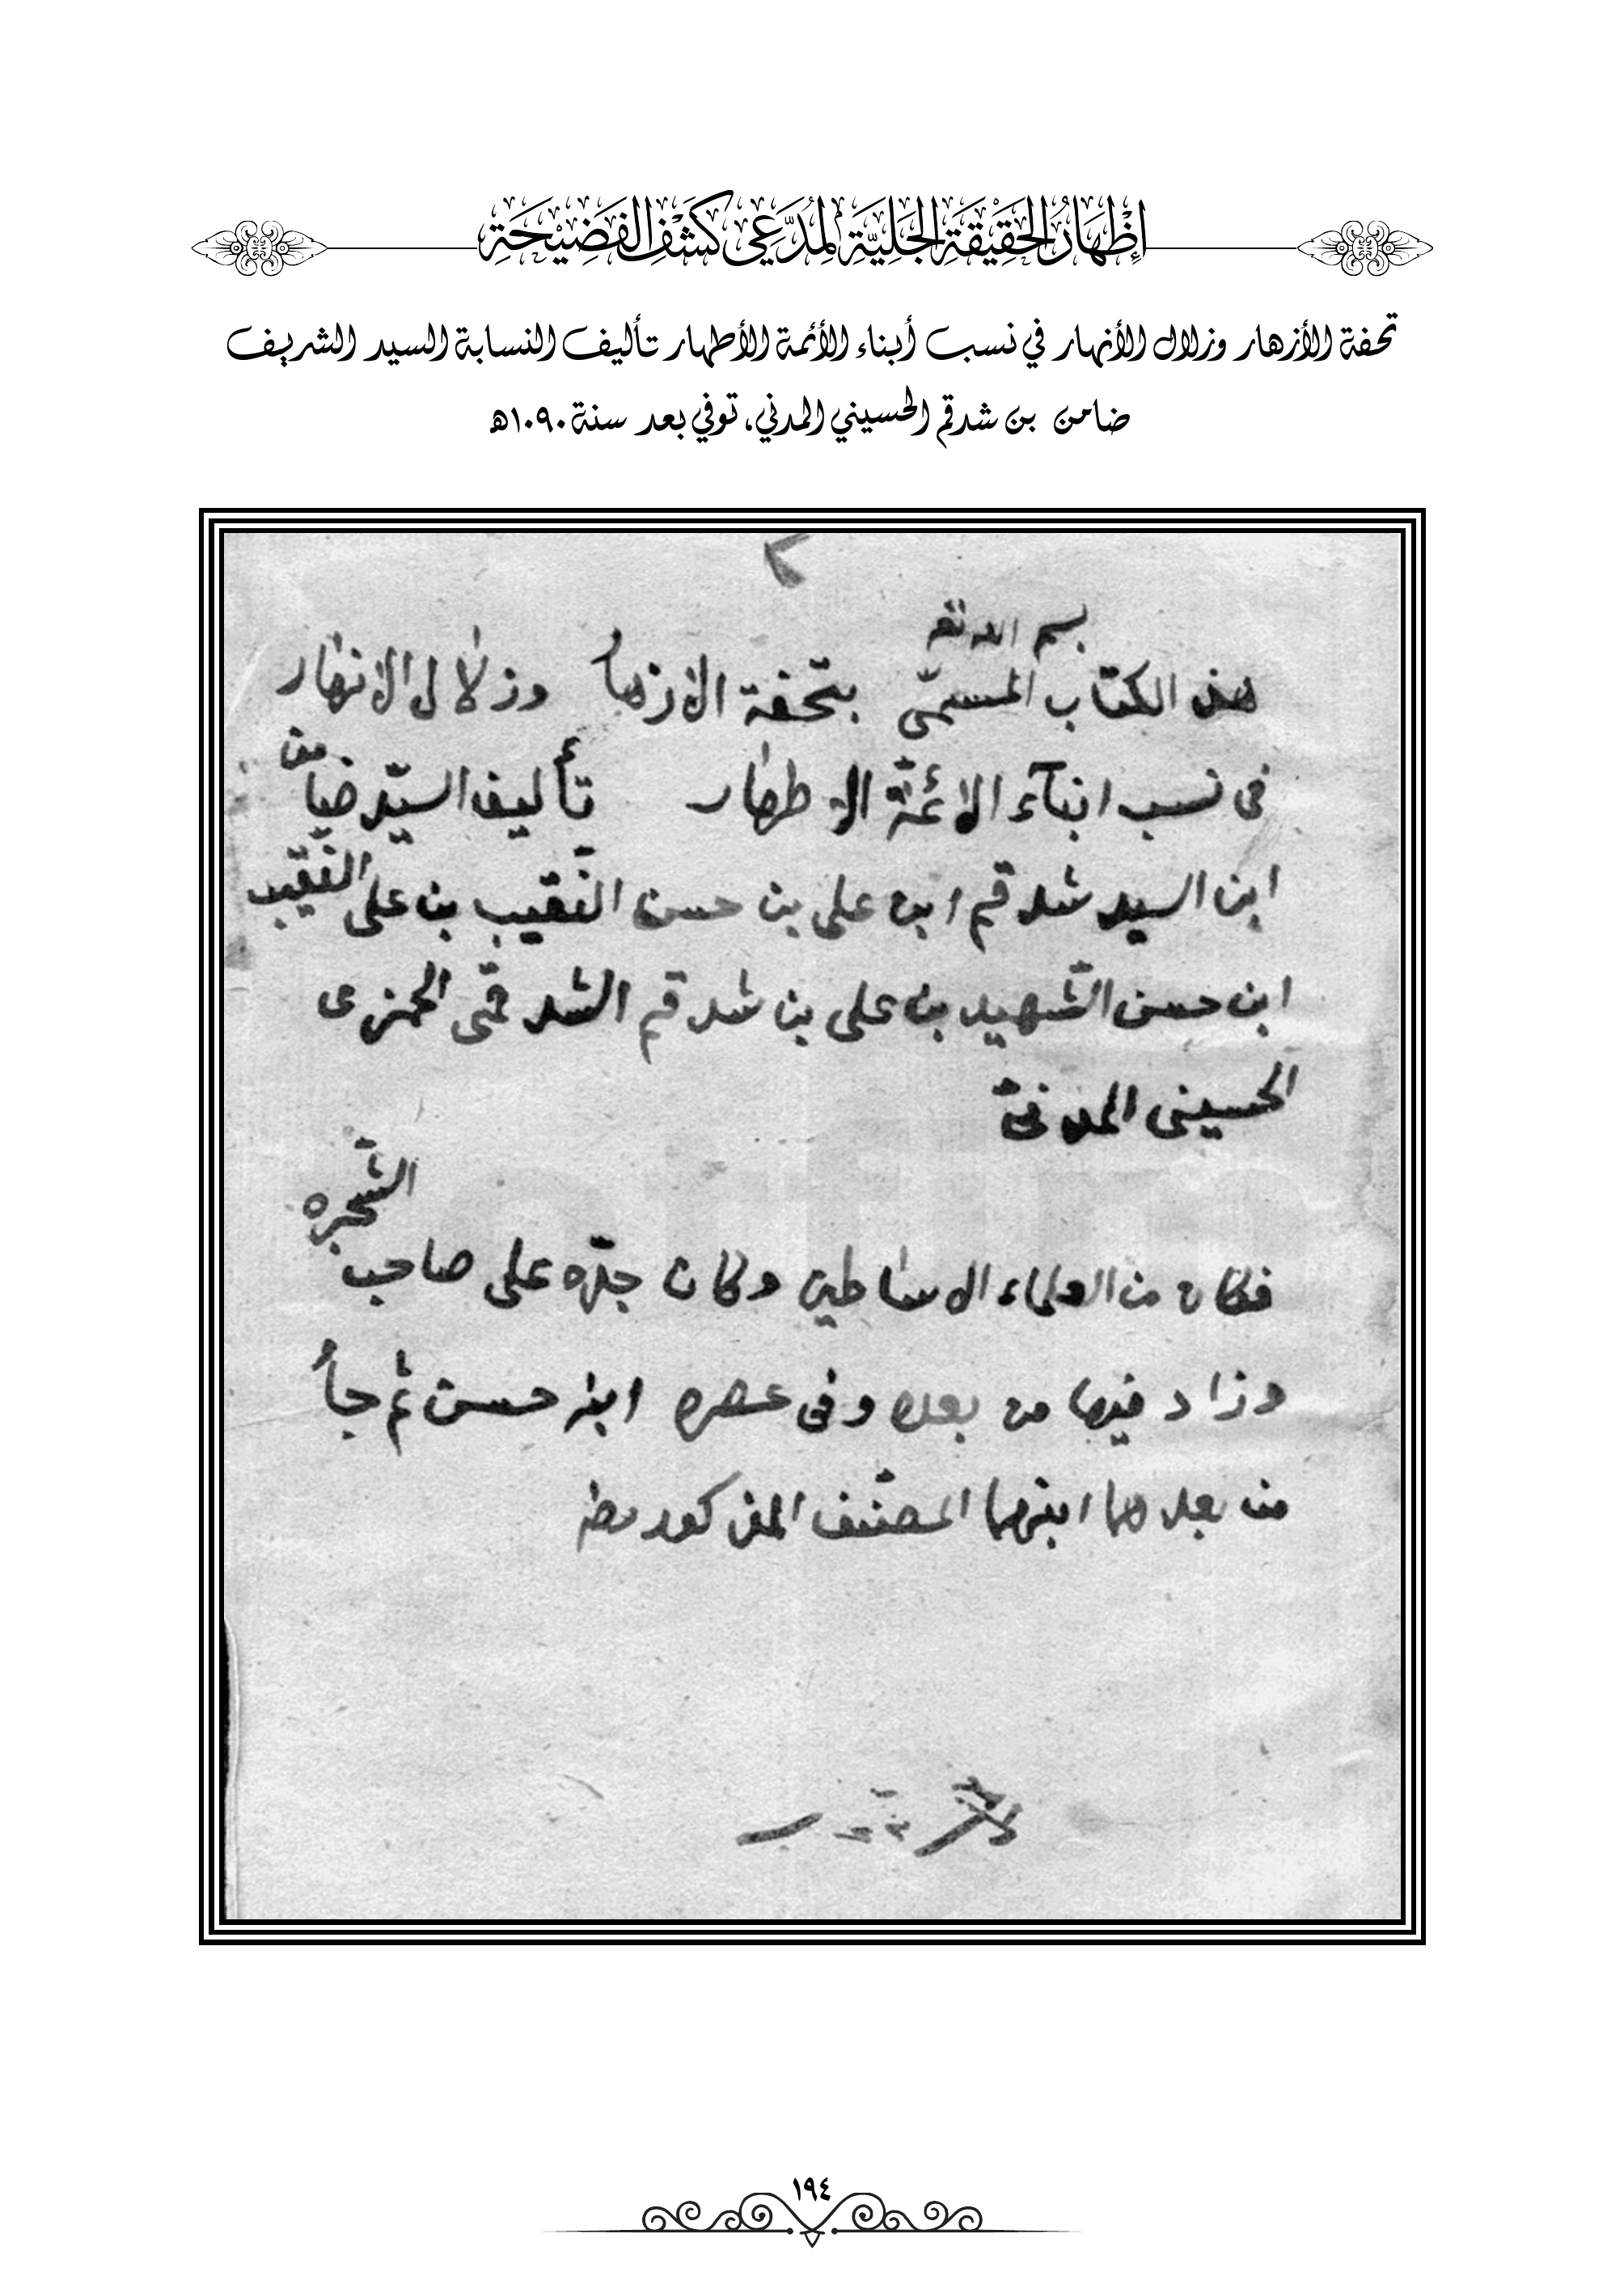 إِظْهَارُ الحَقِيْقَةِ الجَلِيَّةِ لِمُدَّعِي كَشْفِ الفَضِيْحَةِ
تحفة الأزهار وزلال الأنهار في نسب أبناء الأئمة الأطهار تأليف النسابة السيد الشريف
ضامن بن شدقم الحسيني المدني، توفي بعد سنة ١٠٩٠هـ
بسم الله تعـ
هذا الكتاب المسمّى بتحفة الازهار وزلال الانهار
فى نسب ابنآء الائمّة الاطهار تأليف السيّد ضامن
ابن السيد شدقم ابن على بن حسن النّقيب بن على النّقيب
ابن حسن الشّهيد بن على بن شدقم الشدقمّى الحمزى
الحسينى المدنىّ
فكان من العلماء الاساطين وكان جدّه على صاحب الشّجره
وزاد فيها من بعده وفى عصره ابنه حسن ثم جاء
من بعدهما ابنهما المصنّف المذكور
١٩٤